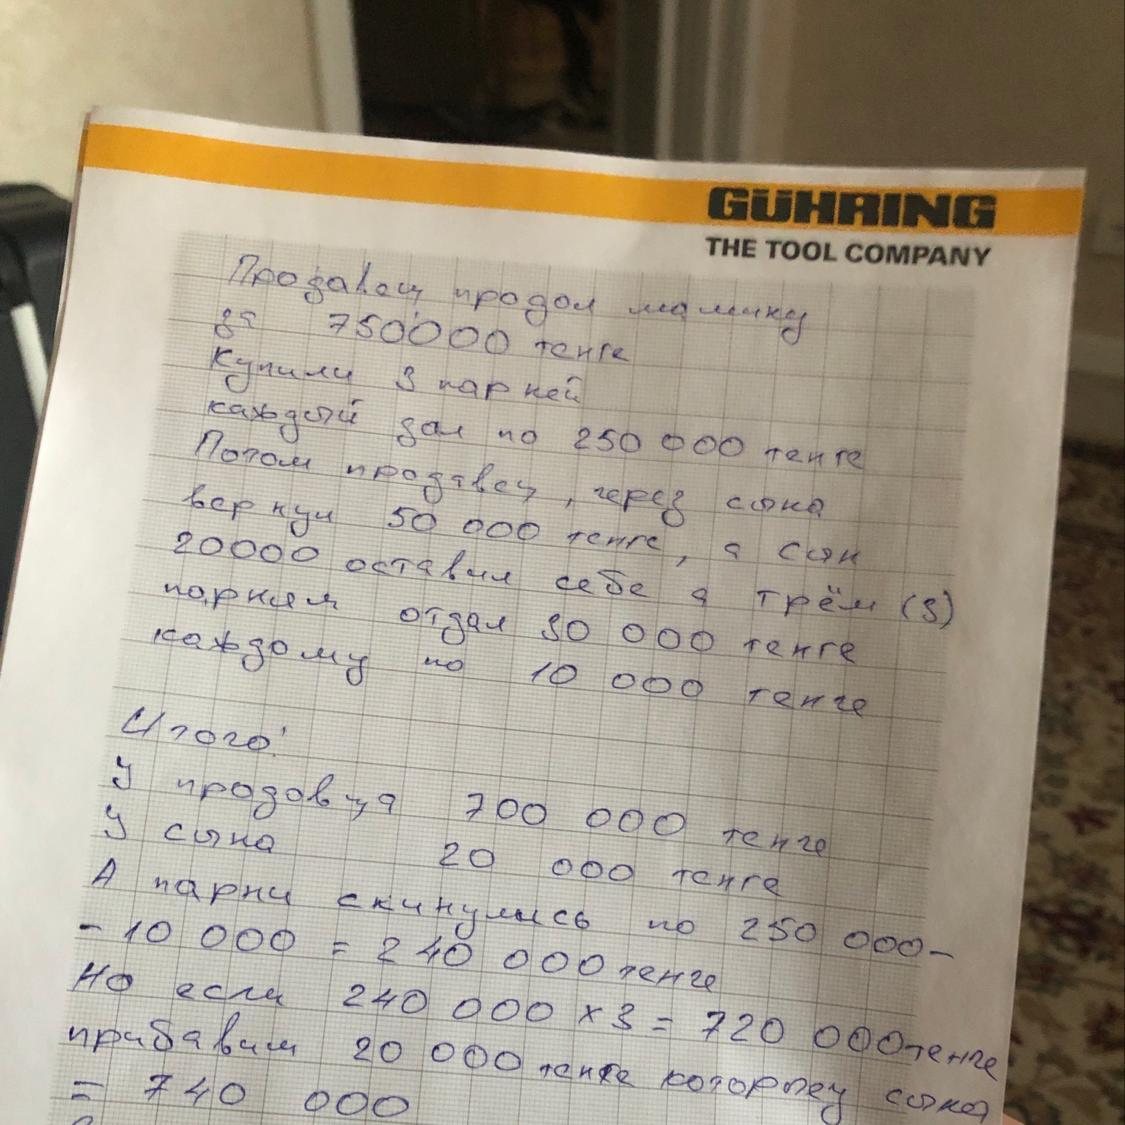 GÜHRING
THE TOOL COMPANY
Продавец продал машину
за 750000 тенге
Купили 3 парней
каждый дал по 250 000 тенге
Потом продавец, через сына
вернул 50 000 тенге, а сын
20000 оставил себе а трём (3)
парням отдал 30 000 тенге
каждому по 10 000 тенге
Итого:
У продовца 700 000 тенге
У сына 20 000 тенге
А парни скинулись по 250 000-
- 10 000 = 240 000 тенге
Но если 240 000 x 3 = 720 000 тенге
прибавим 20 000 тенге которые у сына
= 740 000